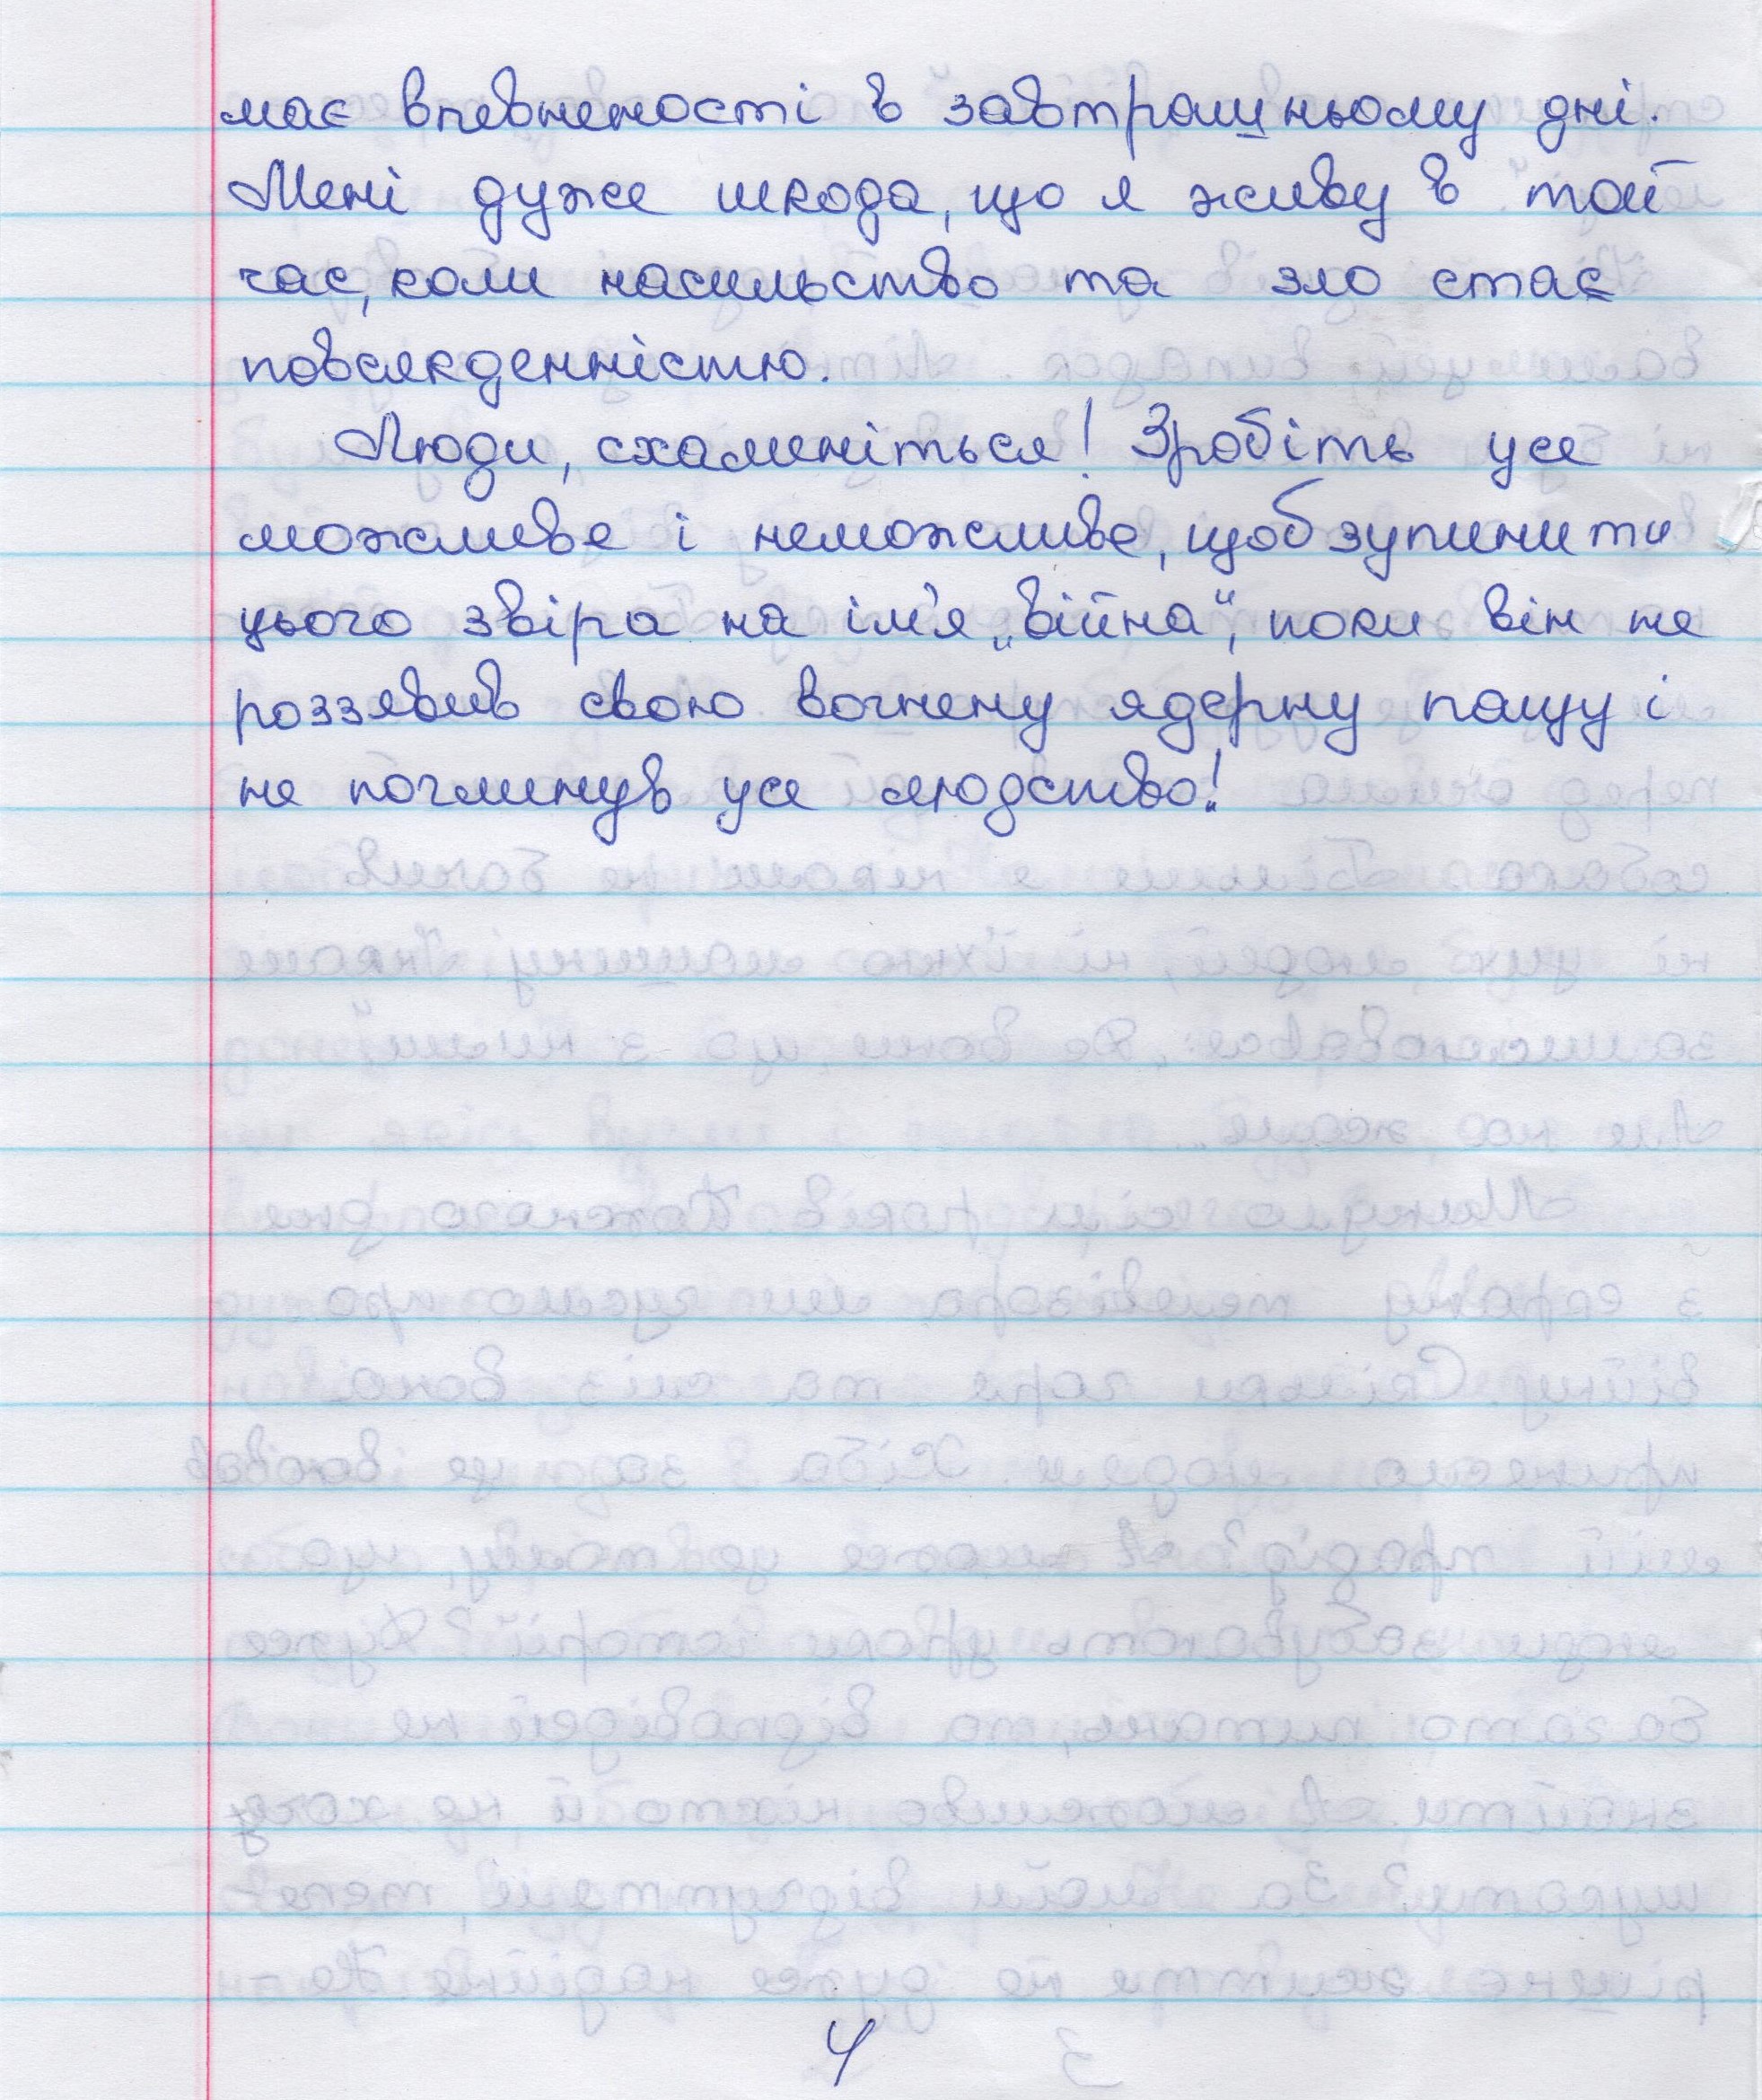 має впевнености в завтрашньому дні.
Мені дуже шкода, що я живу в той
час, коли насильство та зло стає
повсякденністю.
Люди, схаменіться! Зробіть усе
можливе і неможливе, щоб зупинити
цього звіра на ім'я „війна“, поки він не
роззявив свою вогнену ядерну пащу і
не поглинув усе людство!
4